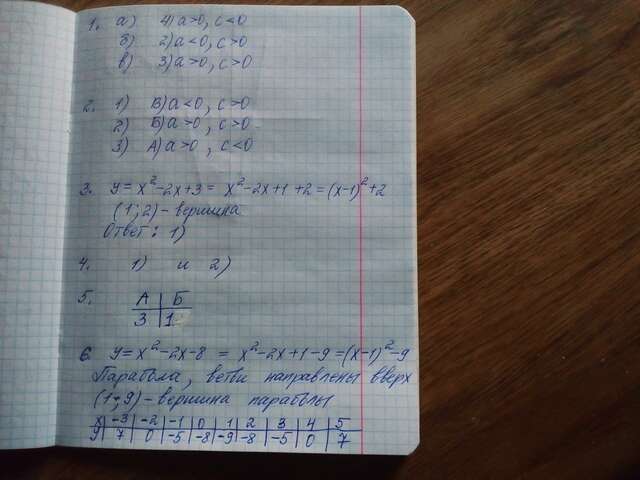 1. а) 4) а>0, с<0
б) 2) а<0, с>0
в) 3) а>0, с>0
2. 1) В) а<0, с>0
2) Б) а>0, с>0
3) А) а>0, с<0
3. y = x² - 2x + 3 = x² - 2x + 1 + 2 = (x-1)² + 2
(1; 2) - вершина
Ответ: 1)
4. 1) и 2)
5. А | Б
3 | 1
6. y = x² - 2x - 8 = x² - 2x + 1 - 9 = (x-1)² - 9
Парабола, ветви направлены вверх
(1; 9) - вершина параболы
x | -3 | -2 | -1 | 0 | 1 | 2 | 3 | 4 | 5
y | 7 | 0 | -5 | -8 | -9 | -8 | -5 | 0 | 7